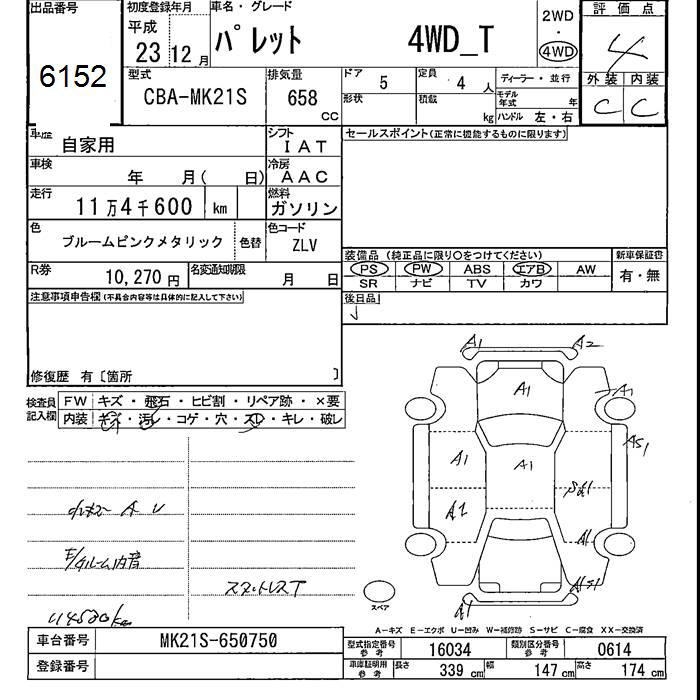 出品番号
6152
初度登録年月
平成 23 12月
車名・グレード
パレット 4WD_T
2WD
・
4WD
評価点
4
外装 内装
C C
型式
CBA-MK21S
排気量
658 CC
ドア 5
定員 4 人
形状
積載 kg
ディーラー・並行
モデル年式 年
ハンドル 左・右
車歴 自家用
シフト
IAT
セールスポイント(正常に機能するものに限ります)
車検 年 月( 日)
冷房
AAC
走行 11万4千600 km
燃料
ガソリン
色 ブルームピンクメタリック 色替
色コード
ZLV
装備品(純正品に限り○をつけてください)
PS PW ABS エアB AW
SR ナビ TV カワ
新車保証書
有・無
R券 10,270円
名変通知期限 月 日
後日品
注意事項申告欄(不具合内容等は具体的に記入して下さい)
修復歴 有〔箇所 〕
検査員記入欄
FW キズ・飛石・ヒビ割・リペア跡・×要
内装 キズ・汚レ・コゲ・穴・スレ・キレ・破レ
A1 A2
A1
A1
AS1
A1
A1
A1
A1
スペア
A1
スタットレスT
A−キズ E−エクボ U−凹み W−補修跡 S−サビ C−腐食 XX−交換済
車台番号 MK21S-650750
登録番号
型式指定番号 参考 16034
類別区分番号 参考 0614
車庫証明用 参考 長さ 339 cm 幅 147 cm 高さ 174 cm